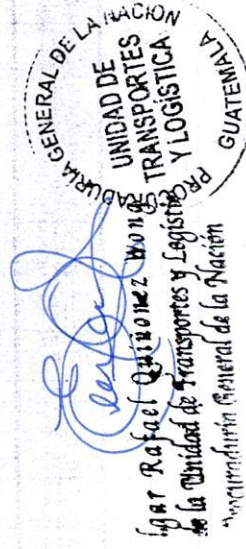 PROCURADURÍA GENERAL DE LA NACIÓN
UNIDAD DE
TRANSPORTES
Y LOGÍSTICA
GUATEMALA
gar Rafael Quiñonez Wong
de la Unidad de Transportes y Logística
Procuraduría General de la Nación